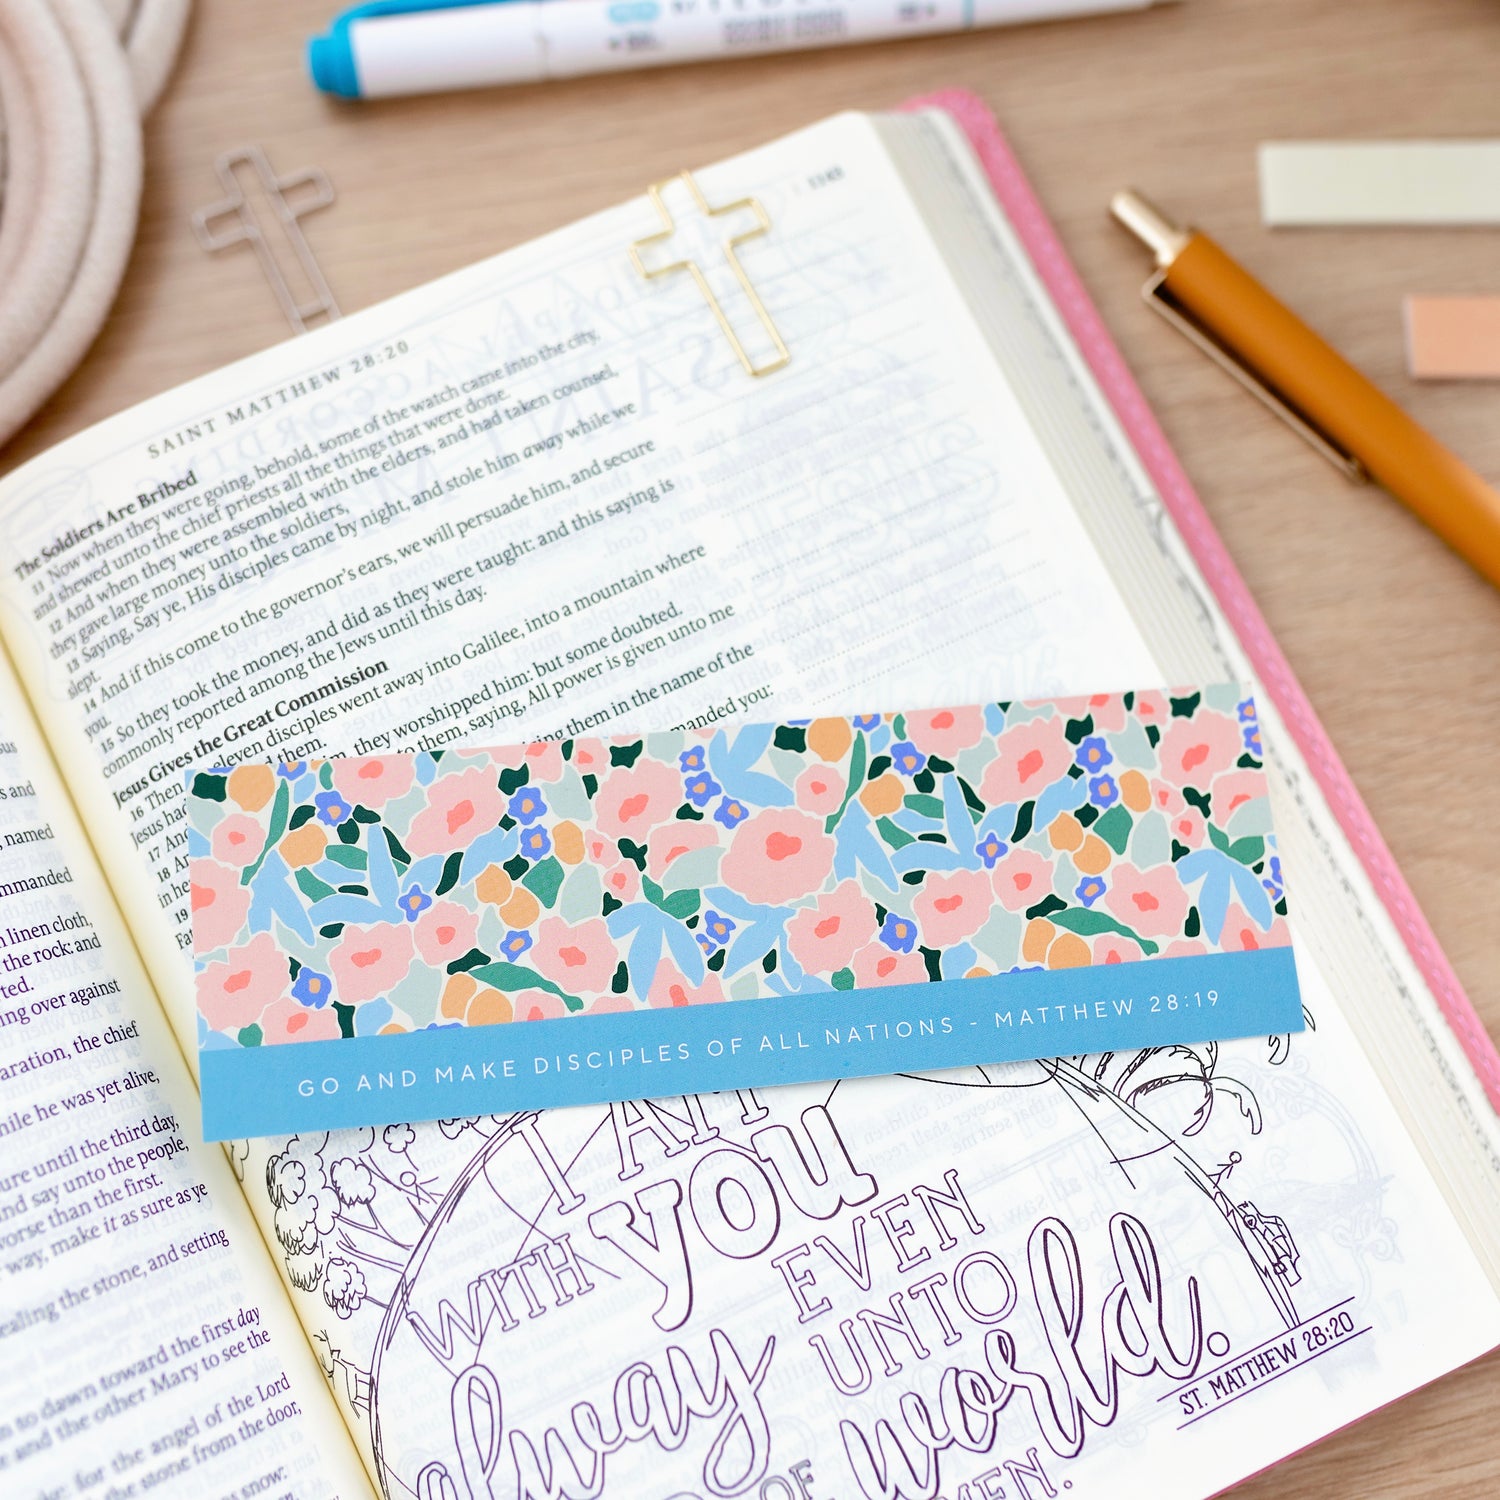 SAINT MATTHEW 28:20
The Soldiers Are Bribed
11 Now when they were going, behold, some of the watch came into the city,
and shewed unto the chief priests all the things that were done.
12 And when they were assembled with the elders, and had taken counsel,
they gave large money unto the soldiers,
13 Saying, Say ye, His disciples came by night, and stole him away while we
slept.
14 And if this come to the governor's ears, we will persuade him, and secure
you.
15 So they took the money, and did as they were taught: and this saying is
commonly reported among the Jews until this day.
Jesus Gives the Great Commission
16 Then eleven disciples went away into Galilee, into a mountain where
Jesus had them.
17 And they worshipped him: but some doubted.
18 to them, saying, All power is given unto me
in he
19 them in the name of the
Fat manded you:
GO AND MAKE DISCIPLES OF ALL NATIONS - MATTHEW 28:19
I AM
WITH you
alway
EVEN
UNTO
world.
ST. MATTHEW 28:20
s and
, named
mmanded
n linen cloth,
the rock: and
ing over against
aration, the chief
hile he was yet alive,
ure until the third day,
nd say unto the people,
worse than the first.
way, make it as sure as ye
ealing the stone, and setting
to dawn toward the first day
and the other Mary to see the
for the angel of the Lord
the stone from the door,
snow: